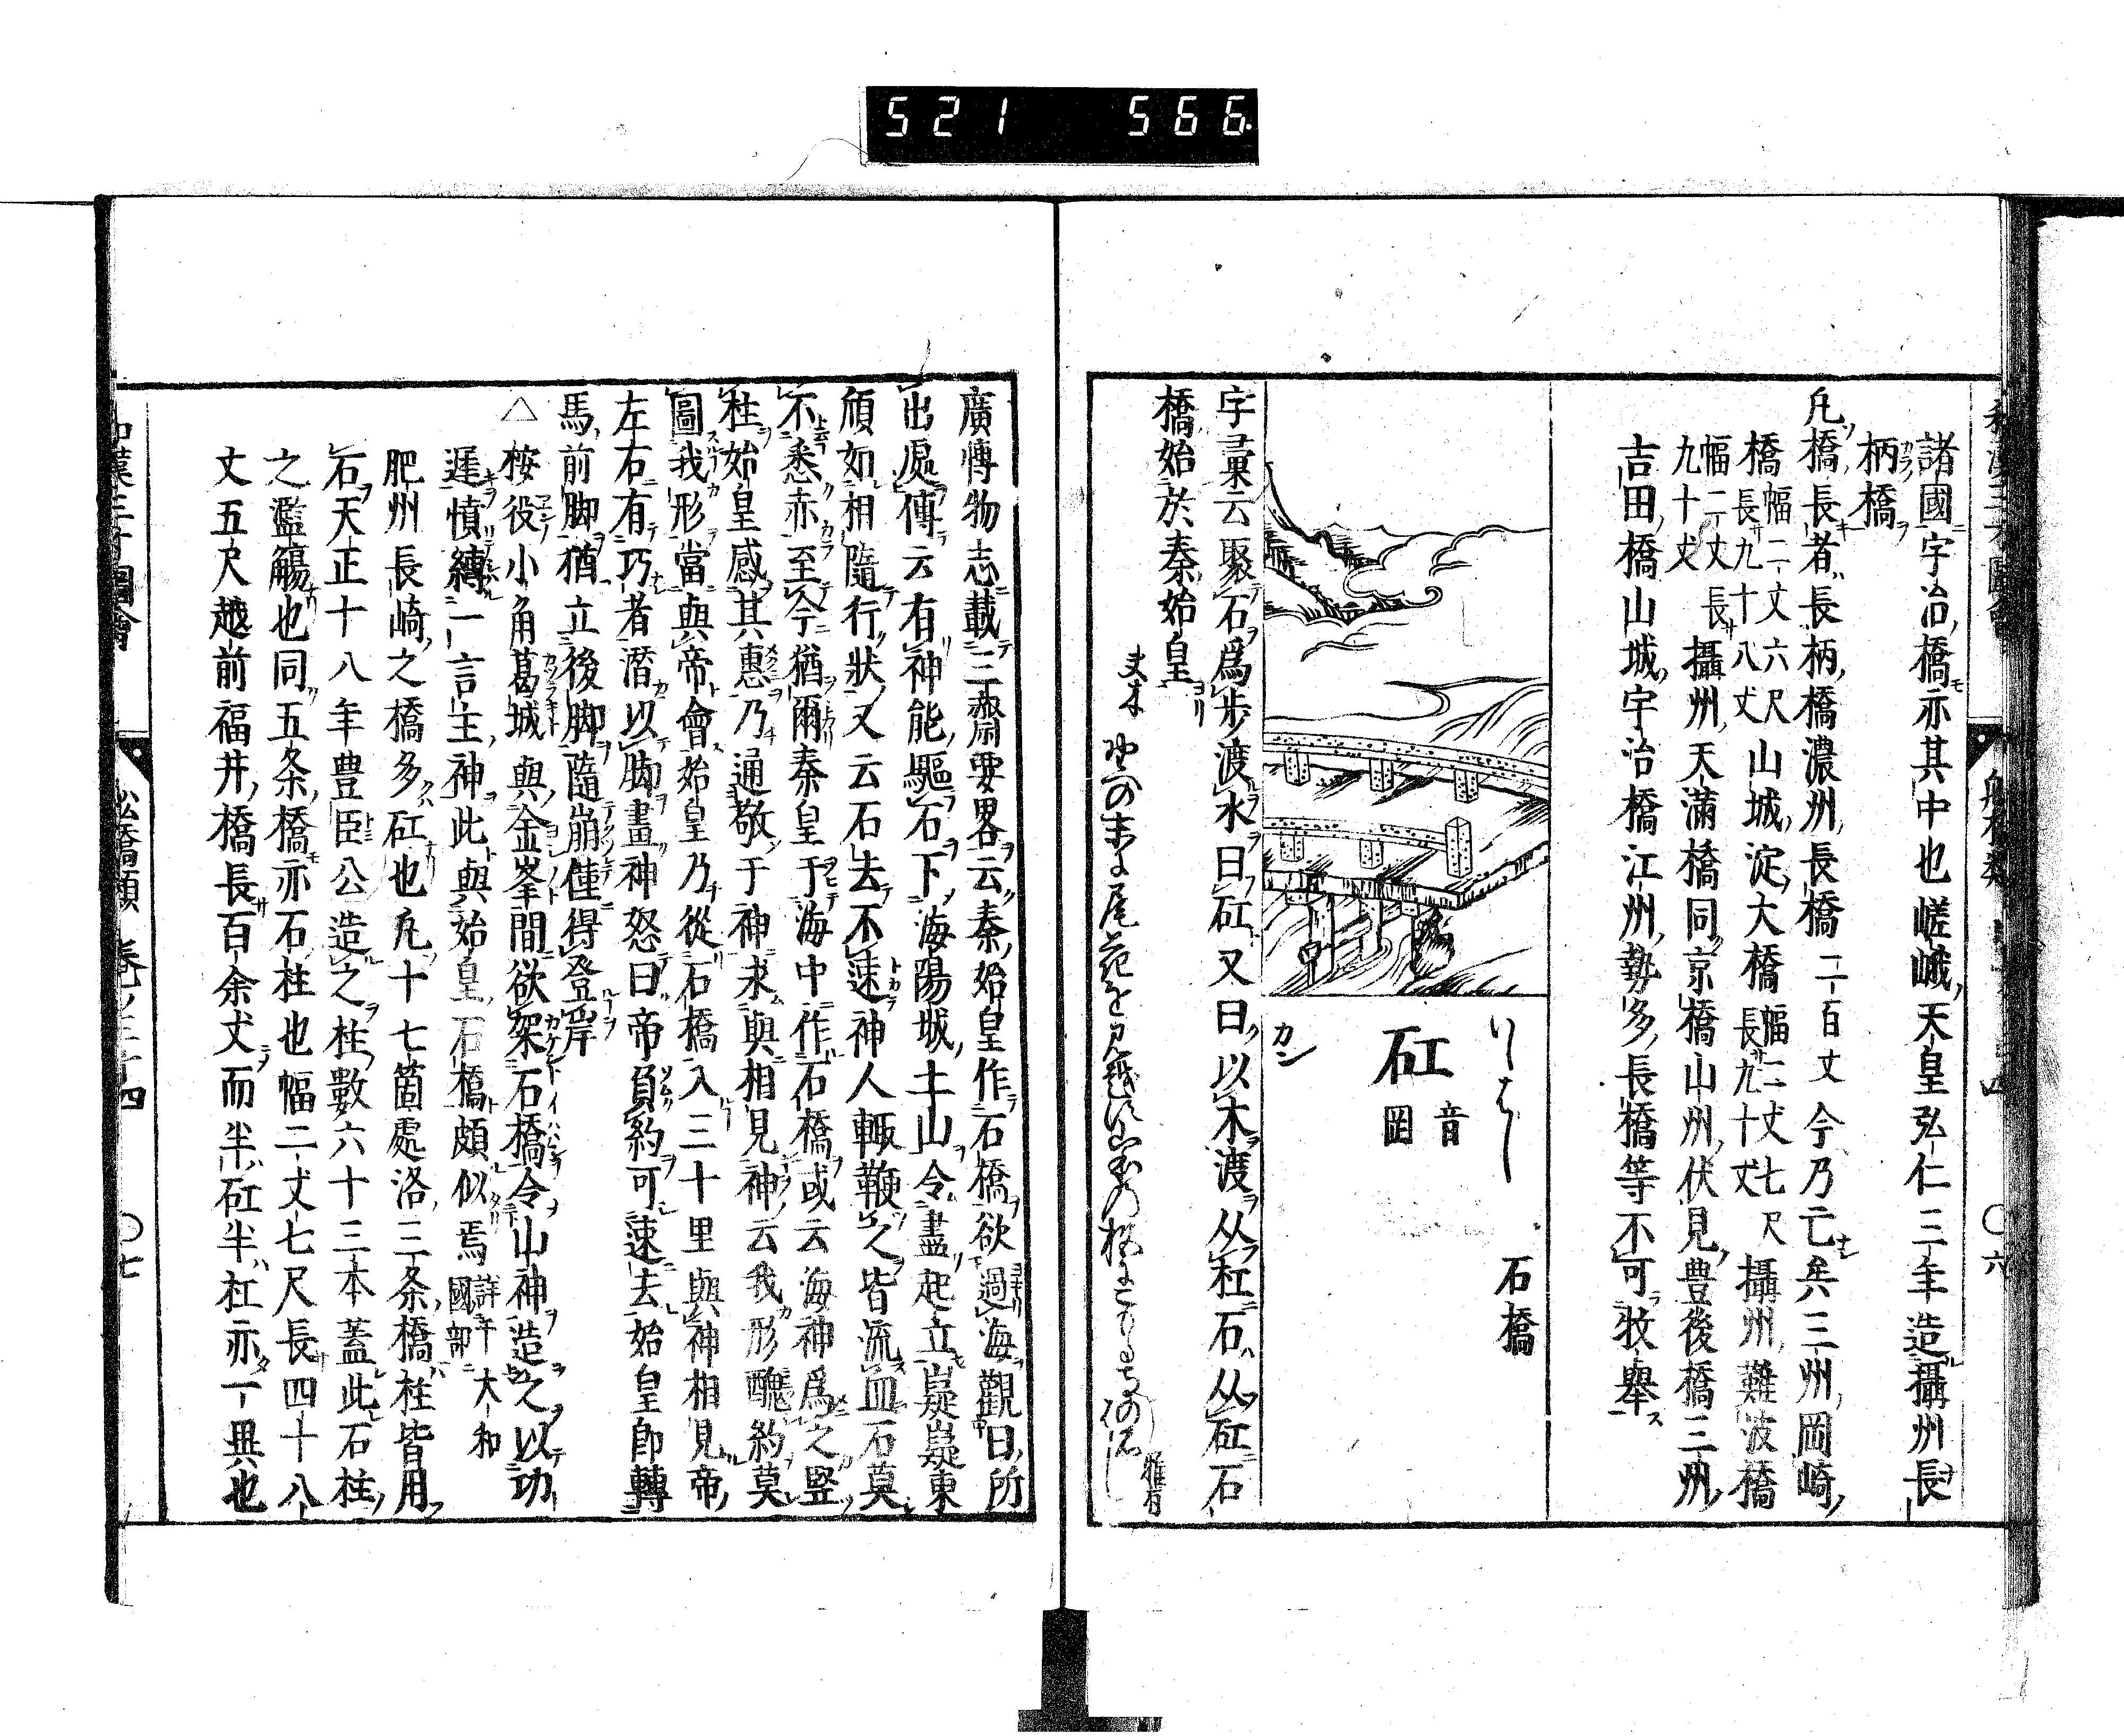 521 566
諸國宇治橋亦其中也嵯峨天皇弘仁三年造攝州長
柄橋
凡橋長者長柄橋濃州長橋二百丈今乃亡矣三州岡崎
橋幅二丈六尺長九十八丈山城淀大橋幅二丈七尺長九十丈攝州難波橋
幅二丈長八丈九十丈攝州天滿橋同京橋山州伏見豊後橋三州
吉田橋山城宇治橋江州勢多長橋等不可牧舉
いしばし
石橋
矼
音岡
カン
字彙云聚石爲步渡水曰矼又曰以木渡从杠石从矼石
橋始於秦始皇
夫木
雅有
廣博物志載三齋要畧云秦始皇作石橋欲過海觀日所
出處傳云有神能驅石下海陽城土山令盡起立嶷嶷東
傾如相隨行狀又云石去不速神人輙鞭之皆流血石莫
不悉赤至今猶爾秦皇于海中作石橋或云海神爲之竪
柱始皇感其惠乃通敬于神求與相見神云我形醜約莫
圖我形當與帝會始皇乃從石橋入三十里與神相見帝
左右有巧者潛以脚畫神怒曰帝負約可速去始皇即轉
馬前脚猶立後脚隨崩僅得登岸
△桉役小角葛城與金峯間欲架石橋令山神造之以功
遲憤縛一言主神此與始皇石橋頗似焉詳于大和國部
肥州長崎之橋多矼也凡十七箇處洛三条橋柱皆用
石天正十八年豊臣公造之柱數六十三本蓋此石柱
之濫觴也同五条橋亦石柱也幅二丈七尺長四十八
丈五尺越前福井橋長百余丈而半矼半杠亦一異也
橋類 卷ノ三十四 〇七